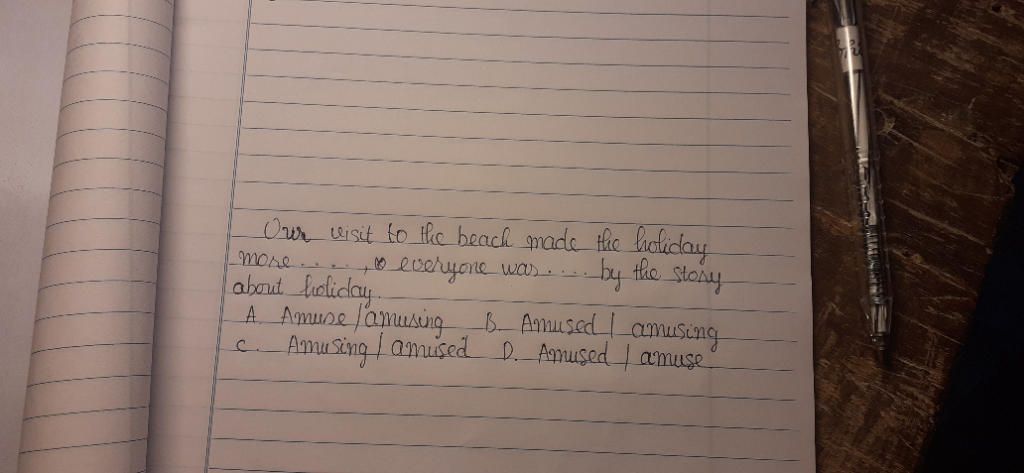 Our visit to the beach made the holiday
more . . . . , everyone was . . . . by the story
about holiday.
A. Amuse / amusing B. Amused / amusing
C. Amusing / amused D. Amused / amuse